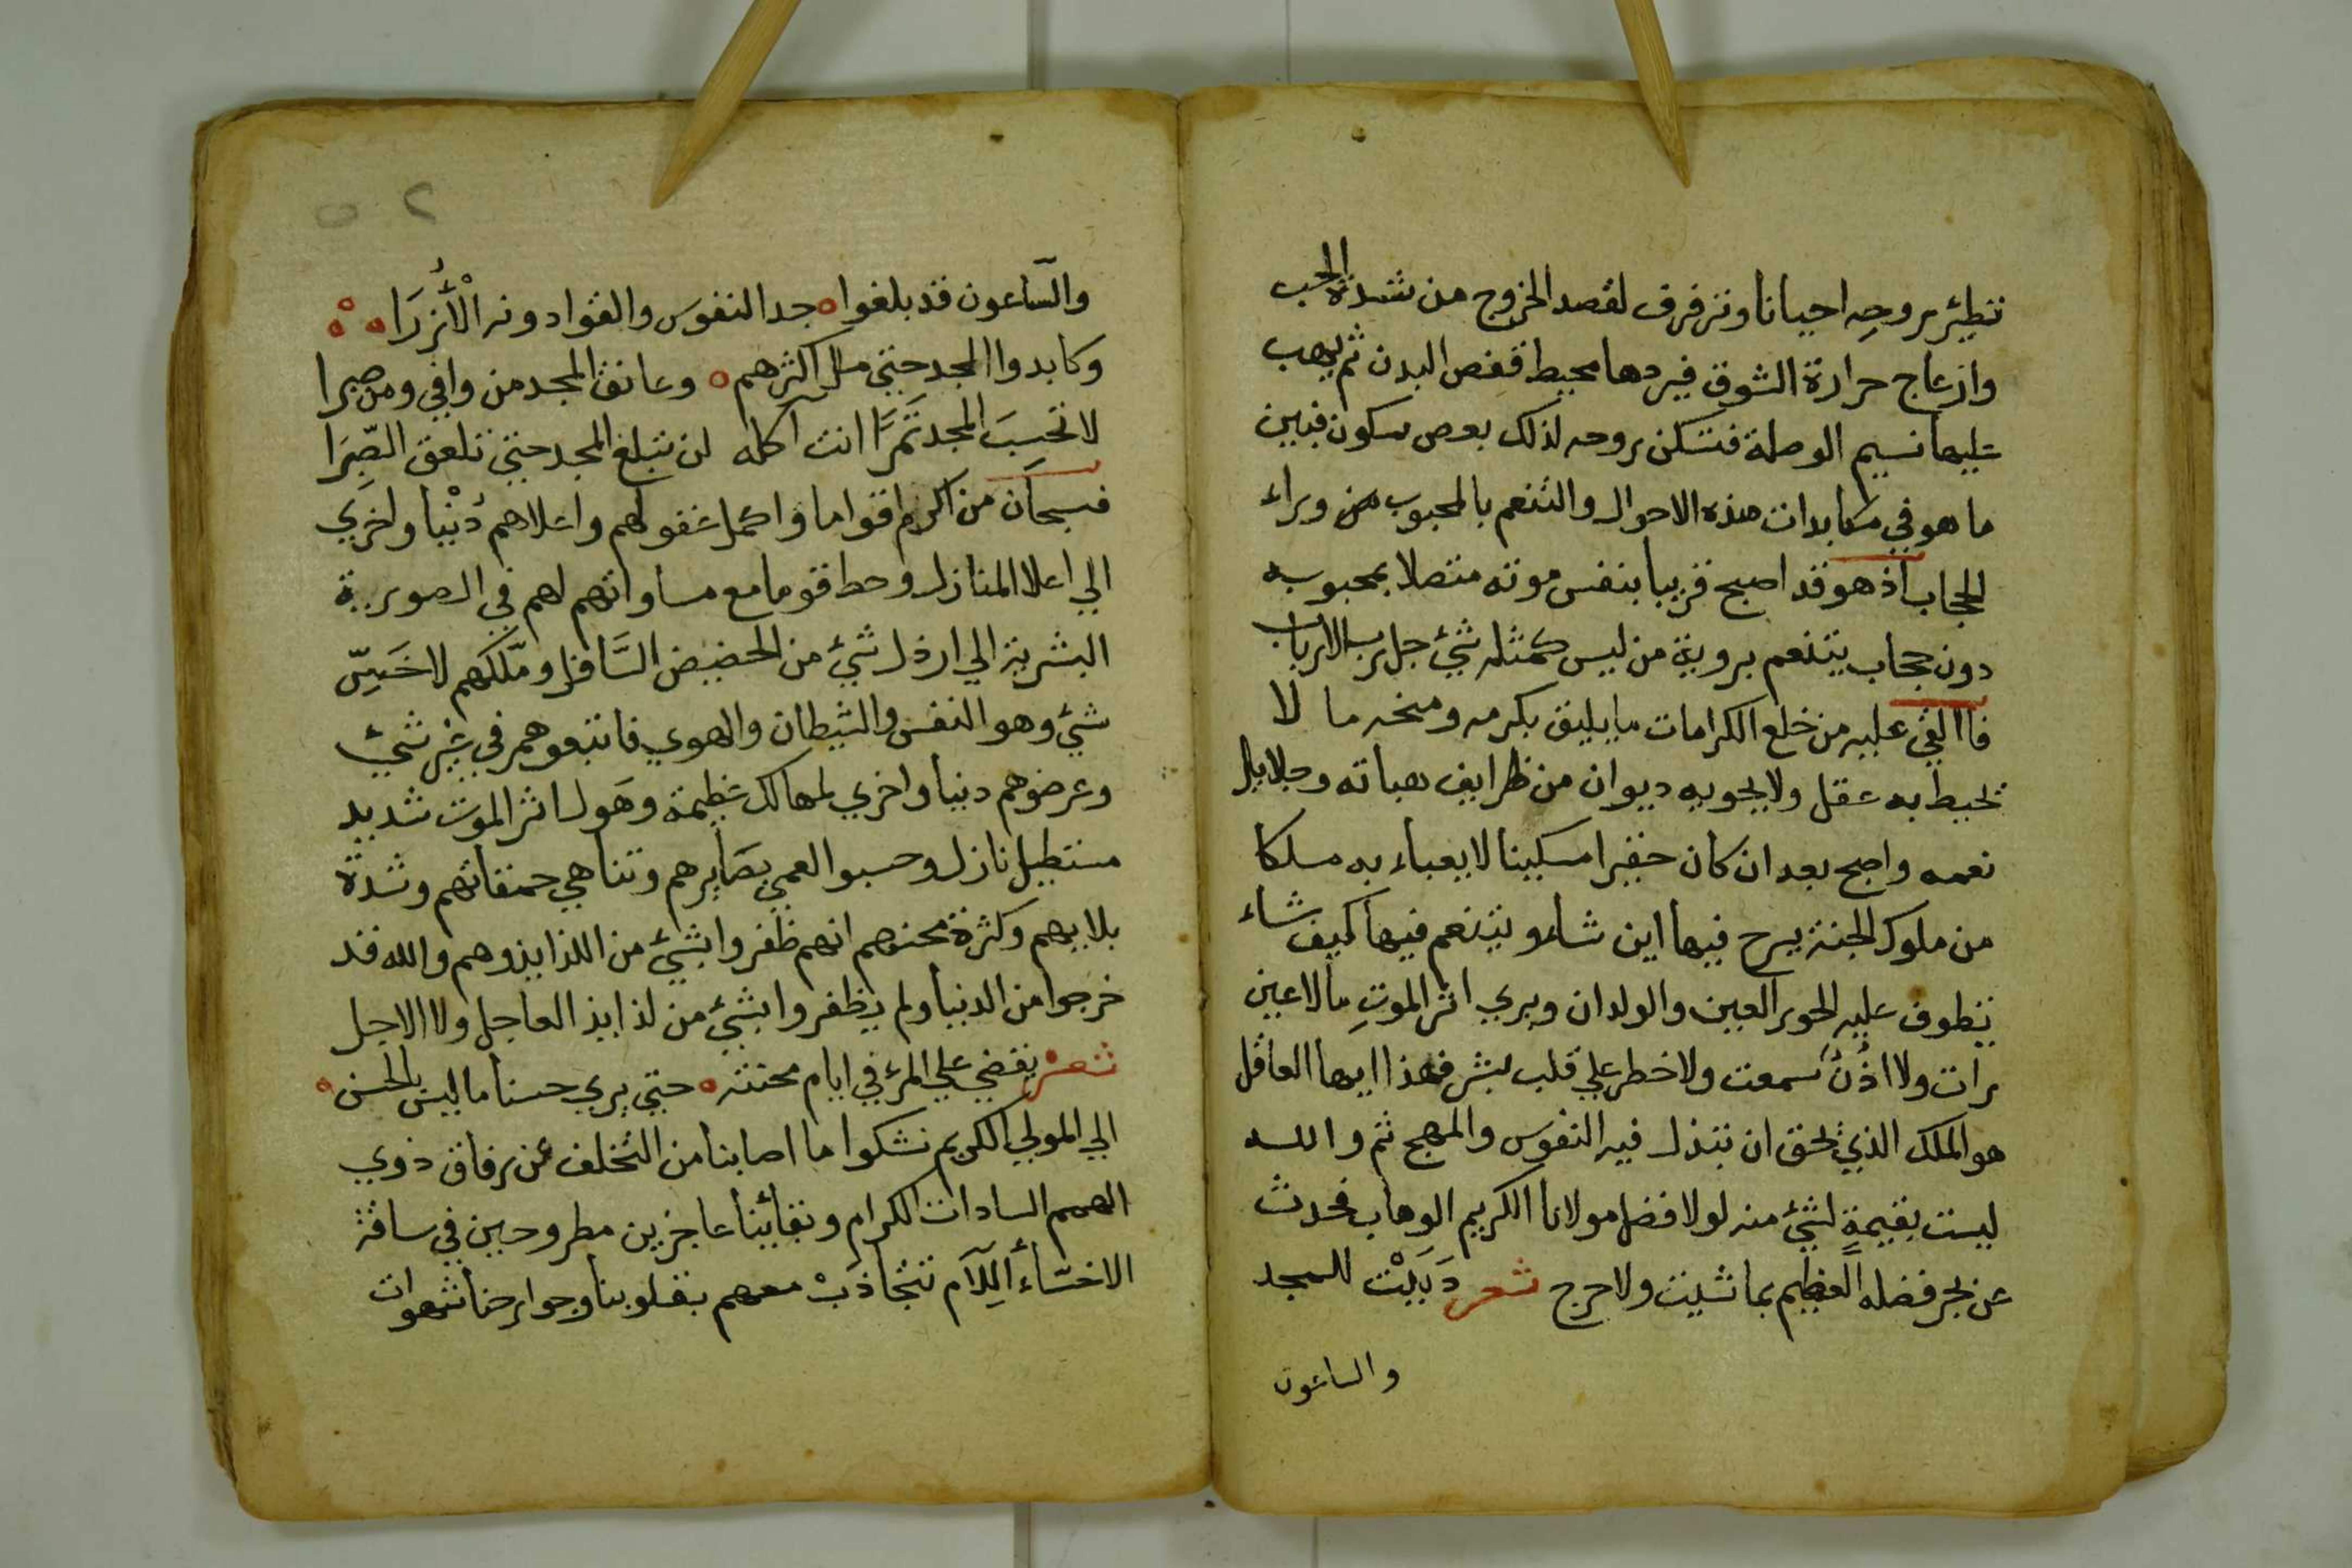 تطير بروحه احيانا وتزفرف لقصد الخروج من شدة الحب
وازعاج حرارة الشوق فيردها محيط قفص البدن ثم يهب
عليها نسيم الوصلة فتسكن بروحه لذلك بعض سكون فبين
ما هو في مكابدات هذه الاحوال والتنعم بالمحبوب من وراء
الحجاب اذ هو قد اصبح قريبا بنفس موته متصلا بمحبوبه
دون حجاب يتنعم بروية من ليس كمثله شيء جل رب الارباب
فاالقي عليه من خلع الكرامات ما يليق بكرمه ومنحه ما لا
يحيط به عقل ولا يحويه ديوان من ظرايف هباته وجلايل
نعمه واصبح بعد ان كان حقيرا مسكينا لا يعباء به ملكا
من ملوك الجنة يسرح فيها اين شاء ويتنعم فيها كيف شاء
تطوف عليه الحور العين والولدان ويري اثر الموت ما لا عين
رات ولا اذن سمعت ولا خطر علي قلب بشر فهذا ايها العاقل
هو الملك الذي يحق ان تبذل فيه النفوس والمهج ثم والله
ليست بقيمة لشيء منه لولا فضل مولانا الكريم الوهاب فحدث
عن بحر فضله العظيم بما شيت ولا حرج شعر دَبَيْت للمجد
والساعون
٥٢
والساعون قد بلغوا ه جد النفوس والقوا دونه الأُزرَا ه
وكابدوا المجد حتي مل اكثرهم ه وعانق المجد من وافي ومن صبرا
لا تحسبَ المجد تَمْرًا انت آكله لن تبلغ المجد حتي تلعق الصّبِرَا
فسبحان من اكرم اقواما واكمل عقولهم واعلاهم دُنْيا واخري
الي اعلا المنازل وحط قوما مع مساواتهم لهم في الصورية
البشرية الي ارذل شيء من الحضيض السَّافل وملّكهم لاخَسِّ
شيء وهو النفس والشيطان والهوي فاتبعوهم في غير شيء
وعرضوهم دنيا واخري لمهالك عظيمة وهول اثر الموت شديد
مستطيل نازل وحسبوا لعمي بصَايرهم وتناهي حمقاتهم وشدة
بلاييهم وكثرة محنهم انهم ظفروا بشيء من اللذايذ وهم والله قد
خرجوا من الدنيا ولم يظفروا بشيء من لذايذ العاجل ولا الاجل
شعر يقضي علي المرء في ايام محنته ه حتي يري حسنا ما ليس بالحسن ه
الي المولي الكريم نشكوا ما اصابنا من التخلف عن رفاق ذوي
الهمم السادات الكرام وبقائنا عاجزين مطروحين في ساقة
الاخسّاء اللِّآم نتجاذَبْ معهم بقلوبنا وجوارحنا شهوات